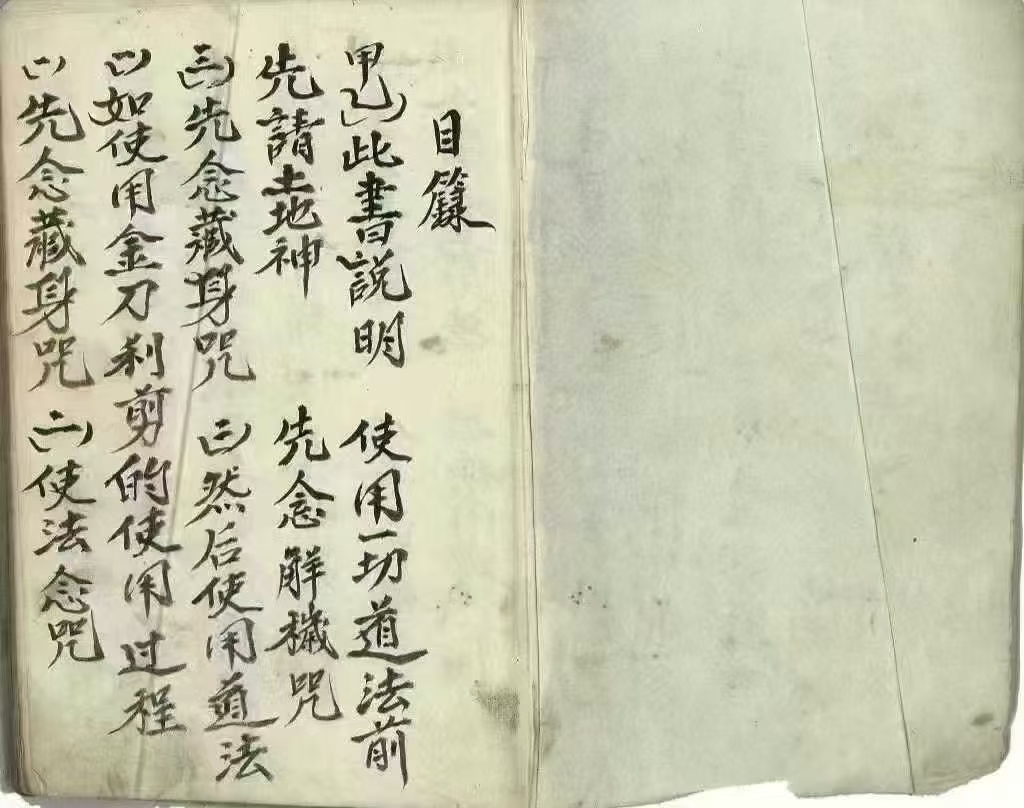 目籙
甲乙)此書説明 使用一切道法前
先請土地神 先念解穢咒
(三)先念藏身咒 (三)然后使用道法
(一)如使用金刀利剪的使用过程
(一)先念藏身咒 (二)使法念咒